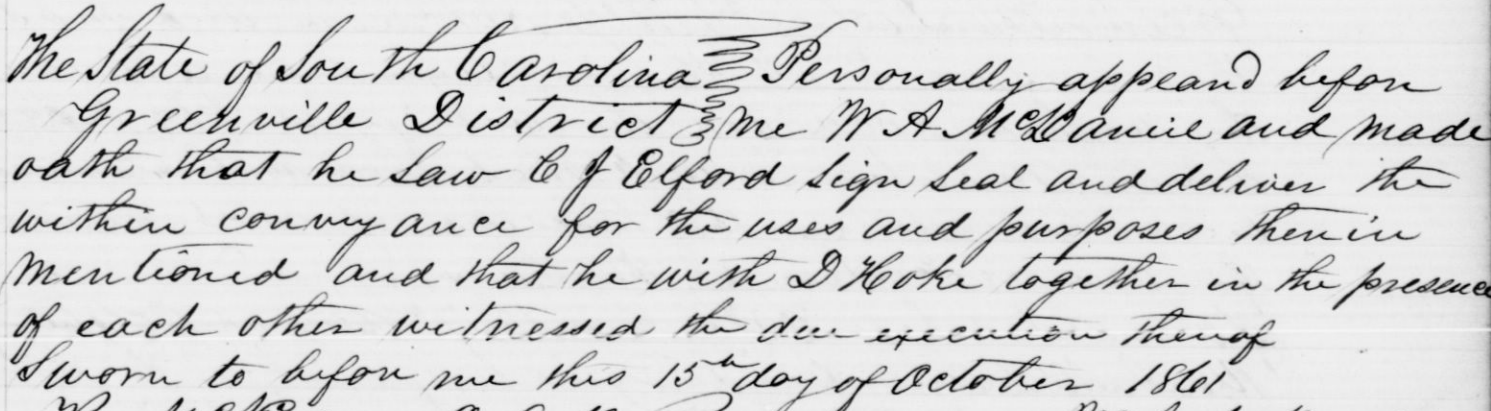 The State of South Carolina Personally appeard before
Greenville District me W A McDaniel and made
oath that he saw C J Elford sign seal and deliver the
within conveyance for the uses and purposes therein
mentioned and that he with D Hoke together in the presence
of each other witnessed the due execution thereof
Sworn to before me this 15th day of October 1861